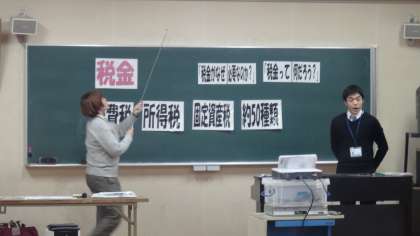 税金
「税金がなぜ 必要なのか？」
「税金って 何だろう？」
費税
所得税
固定資産税
約50種類